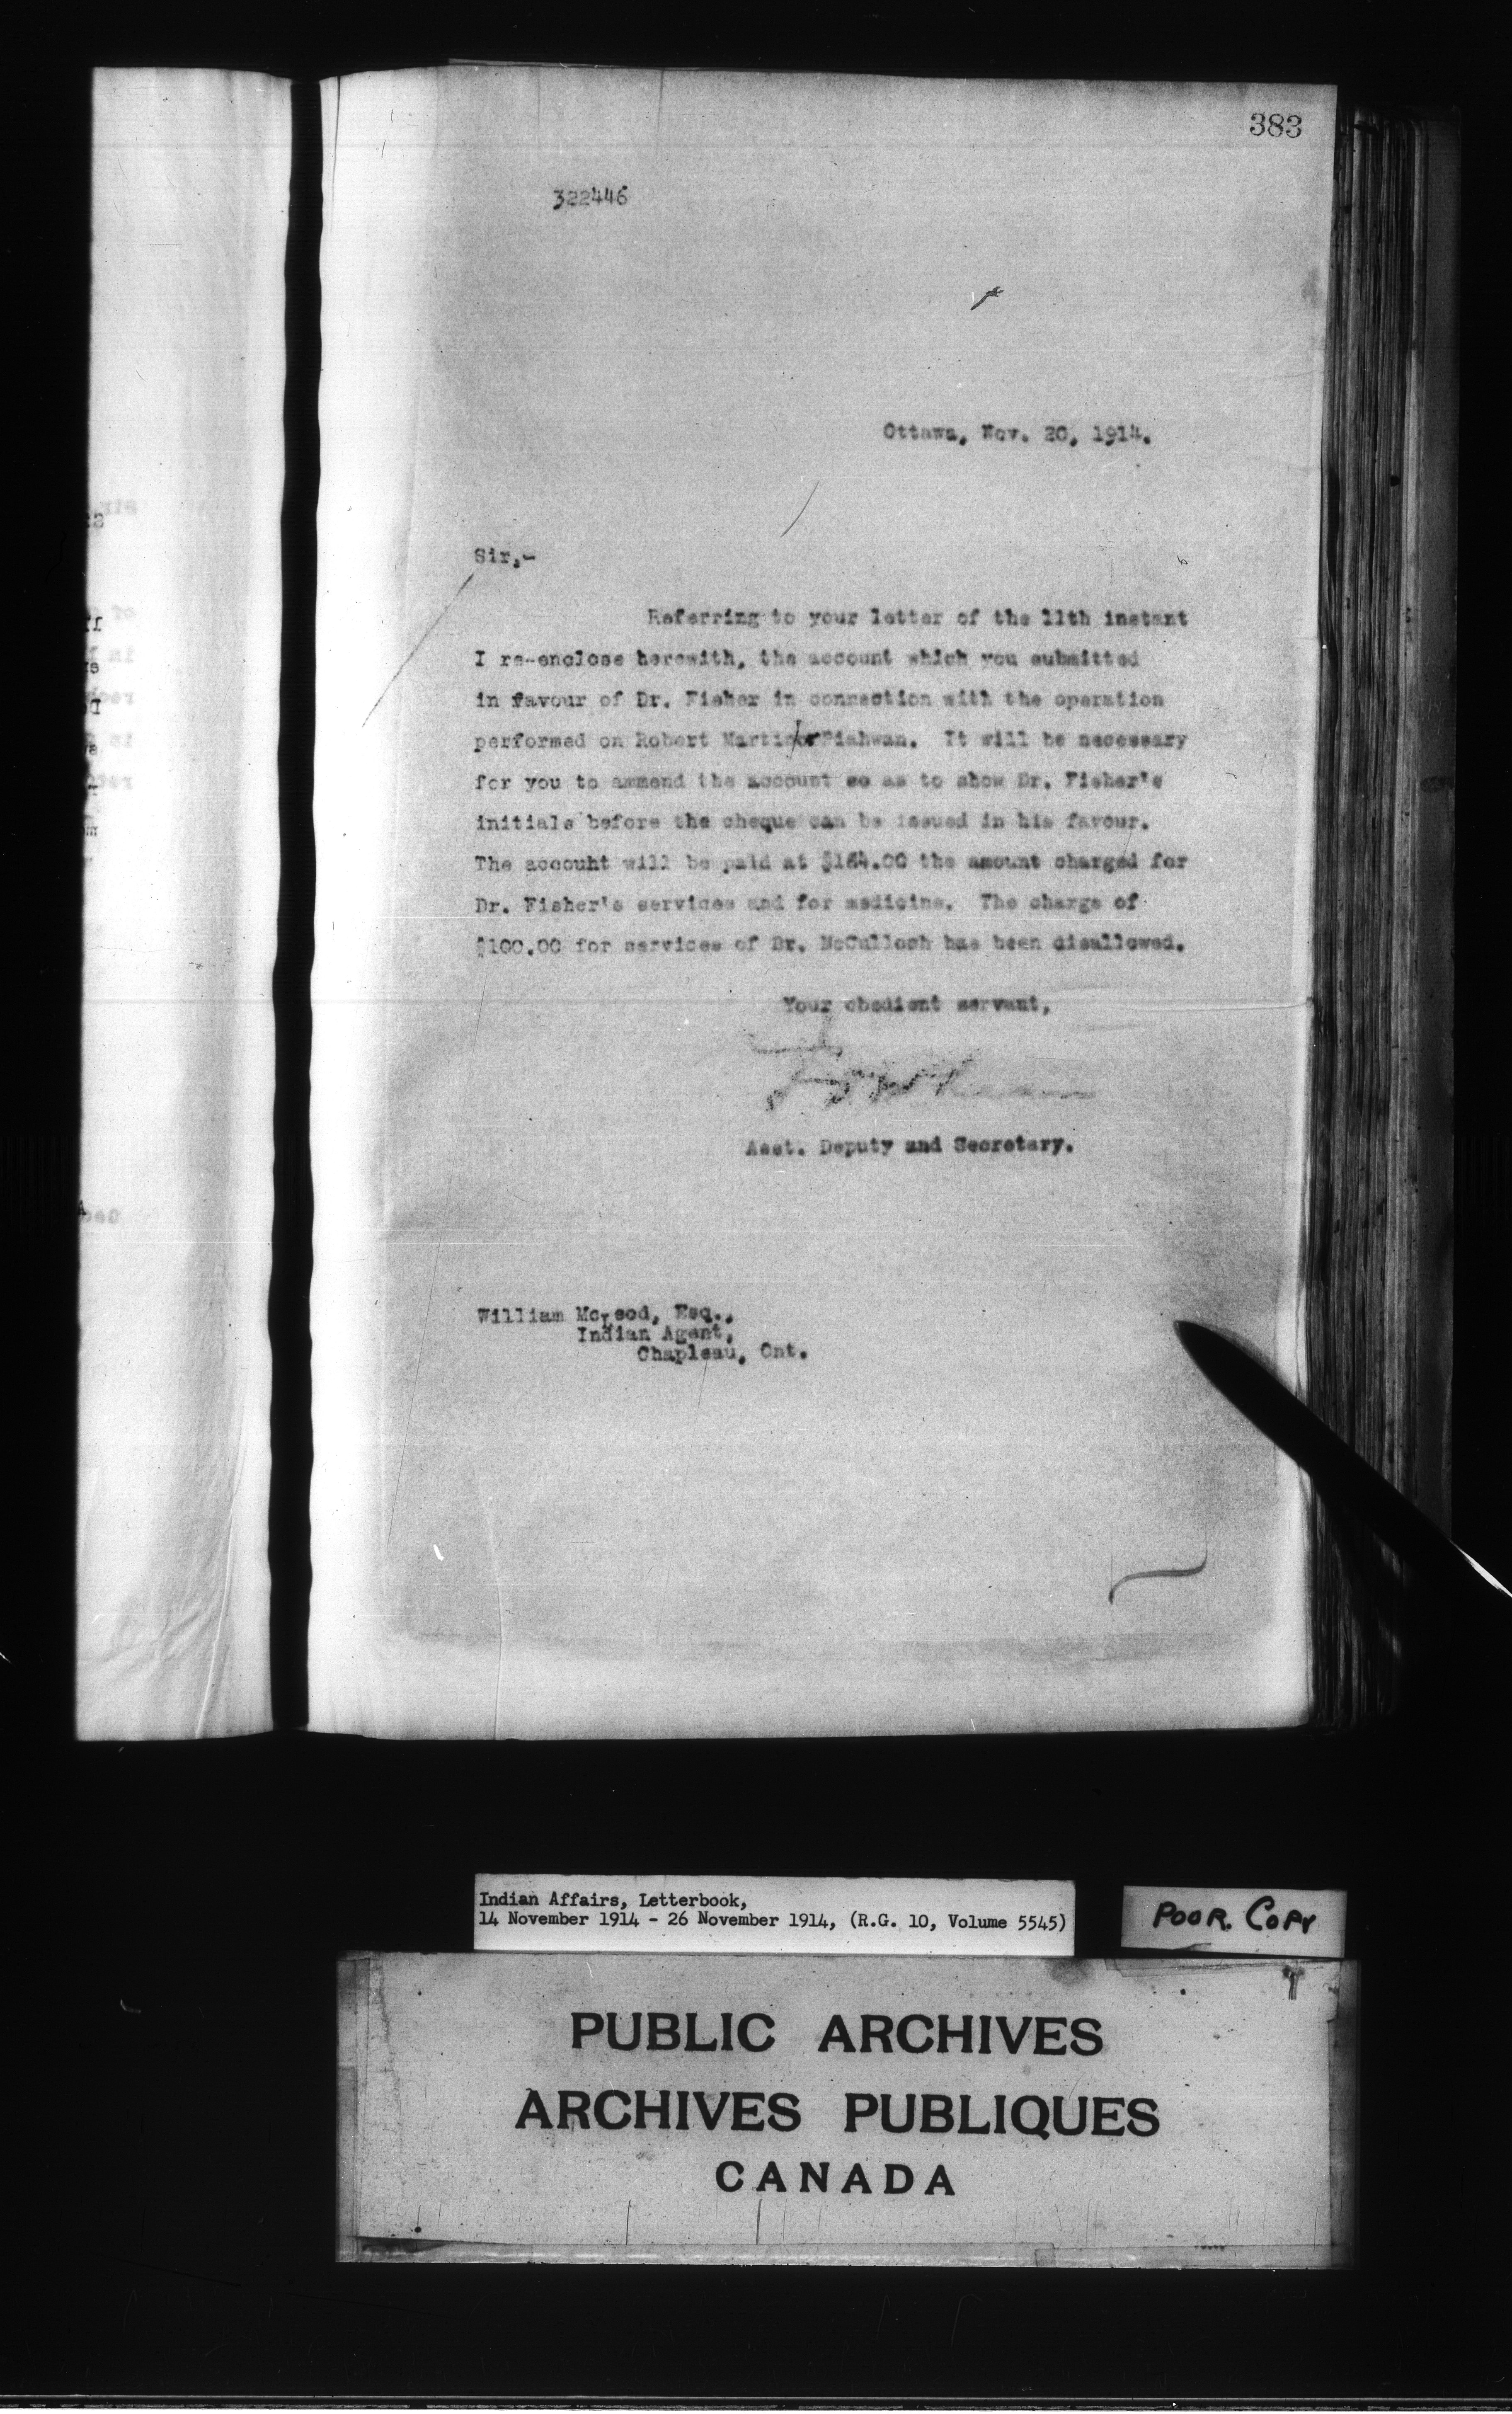 383
322446
Ottawa, Nov. 20, 1914.
Sir,-
Referring to your letter of the 11th instant
I re-enclose herewith, the account which you submitted
in favour of Dr. Fisher in connection with the operation
performed on Robert Martin or Piahwan. It will be necessary
for you to ammend the account so as to show Dr. Fisher's
initials before the cheque can be issued in his favour.
The account will be paid at $164.00 the amount charged for
Dr. Fisher's services and for medicine. The charge of
$100.00 for services of Dr. McCulloch has been disallowed.
Your obedient servant,
Asst. Deputy and Secretary.
William McLeod, Esq.,
Indian Agent,
Chapleau, Ont.
Indian Affairs, Letterbook,
14 November 1914 - 26 November 1914, (R.G. 10, Volume 5545)
POOR. COPY
PUBLIC ARCHIVES
ARCHIVES PUBLIQUES
CANADA